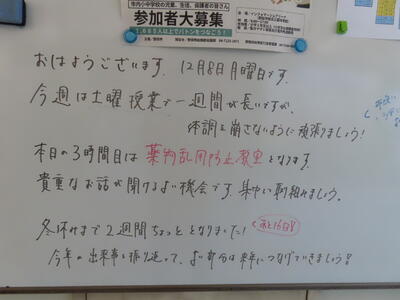 市内小中学校の児童、生徒、保護者の皆さん
参加者大募集
1,665人以上でバトンをつなごう!
おはようございます。12月8日月曜日です。
今週は土曜授業で一週間が長いですが、
体調を崩さないように頑張りましょう!
本日の3時間目は薬物乱用防止教室となります。
貴重なお話が聞けるよい機会です。集中して取り組みましょう。
冬休みまで2週間ちょっととなりました!
あと16日!
今年の出来事を振り返って、よい部分は来年につなげていきましょう!